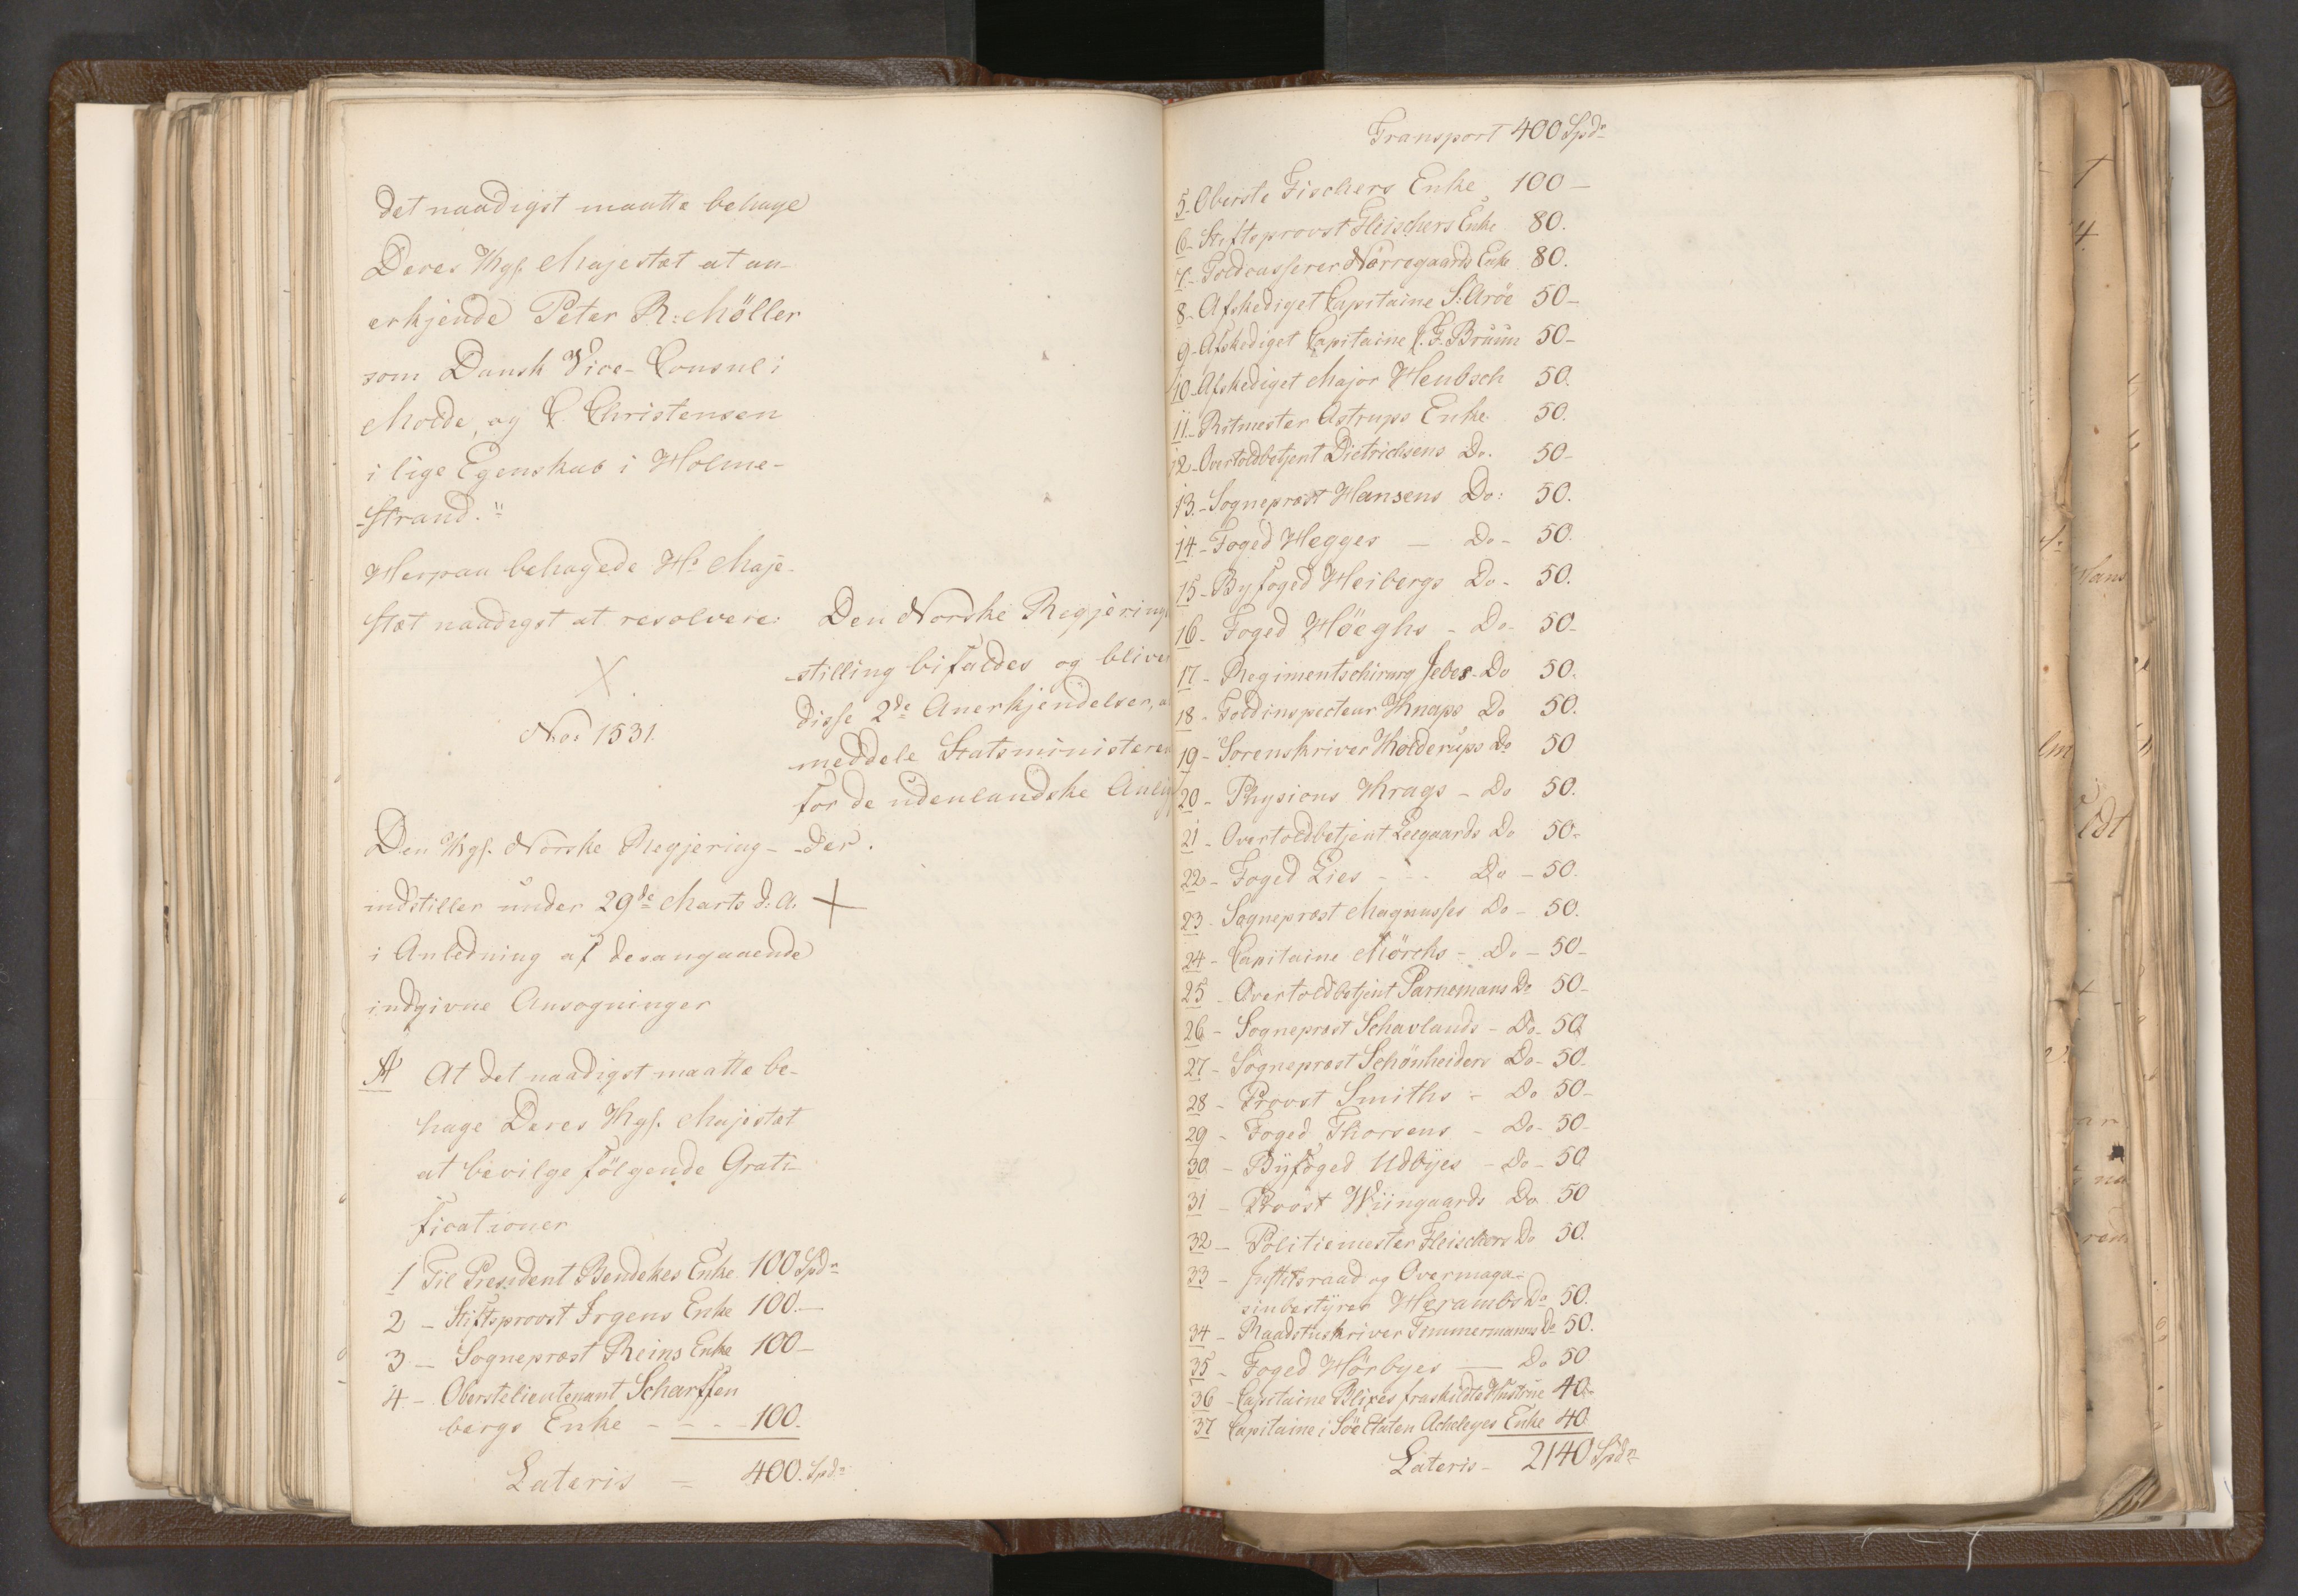 det naadigst maatte behage
Deres Kgl. Majestæt at an-
erkjende Peter R: Möller
som Dansk Vice-Consul i
Molde, og C. Christensen
i lige Egenskab i Holme-
-strand."
Herpaa behagede Hs Maje-
stæt naadigst at resolvere:
Den Norske Regjerings
-stilling bifaldes og bliver
disse 2de Anerkjendelser, a
meddele Statsministeren
for de udenlandske Anlig
-der.
No: 1531.
Den Kgl. Norske Regjering-
indstiller under 29de Marts d: A.
i Anledning af desangaaende
indgivne Ansøgninger
A At det naadigst maatte be-
hage Deres Kgl. Majestæt
at bevilge fölgende Grati-
ficationer
1 Til President Bendekes Enke 100 Spdr
2 - Stiftsprovst Irgens Enke 100.-
3 - Sognepræst Reins Enke 100-
4 - Oberstelieutenant Scharffen
bergs Enke - - - 100.
Lateris = 400. Spdr
Transport 400 Spdr
5 - Oberste Fischers Enke 100 -
6 - Stiftsprovst Fleischers Enke 80.
7 - Toldcasserer Nörregaards Enke 80.
8 - Afskediget Capitaine S: Aröe 50-
9 - Afskediget Capitaine C. F. Bruun 50-
10 - Afskediget Major Heubsch 50.
11 - Ritmester Astrups Enke 50.
12 - Overtoldbetjent Dietrichsens Do. 50-
13. - Sognepræst Hansens Do: 50.
14 - Foged Hegges - Do - 50.
15 - Byfoged Heibergs Do - 50.
16 - Foged Höeghs - Do - 50-
17 - Regimentschirurg Jebes - Do 50.
18 - Toldinspecteur Knaps Do 50.
19 - Sorenskriver Kolderups Do 50
20 - Physicus Krags - Do 50.
21 - Overtoldbetjent Leegaards Do 50-
22 - Foged Lies - - - Do - 50.
23 - Sognepræst Magnusses Do - 50.
24 - Capitaine Mörchs - Do - 50-
25 - Overtoldbetjent Parnemans Do 50-
26 - Sognepræst Schavlands - Do - 50
27 - Sognepræst Schönheiders Do - 50-
28 - Provst Smiths - Do 50-
29 - Foged Thorsens - Do - 50-
30 - Byfoged Udbyes - Do - 50
31 - Provst Wiingaards Do 50
32 - Politiemester Fleischers Do 50.
33 - Justitsraad og Overmaga-
sinbestyrer Herambs Do 50.
34 - Raadstuskriver Timmermanns Do 50.
35 - Foged Hörbyes - Do 50
36 - Capitaine Blixes fraskildte Hustrue 40-
37 Capitaine i Söe Etaten Acheleyes Enke 40.
Lateris - 2140 Spdr